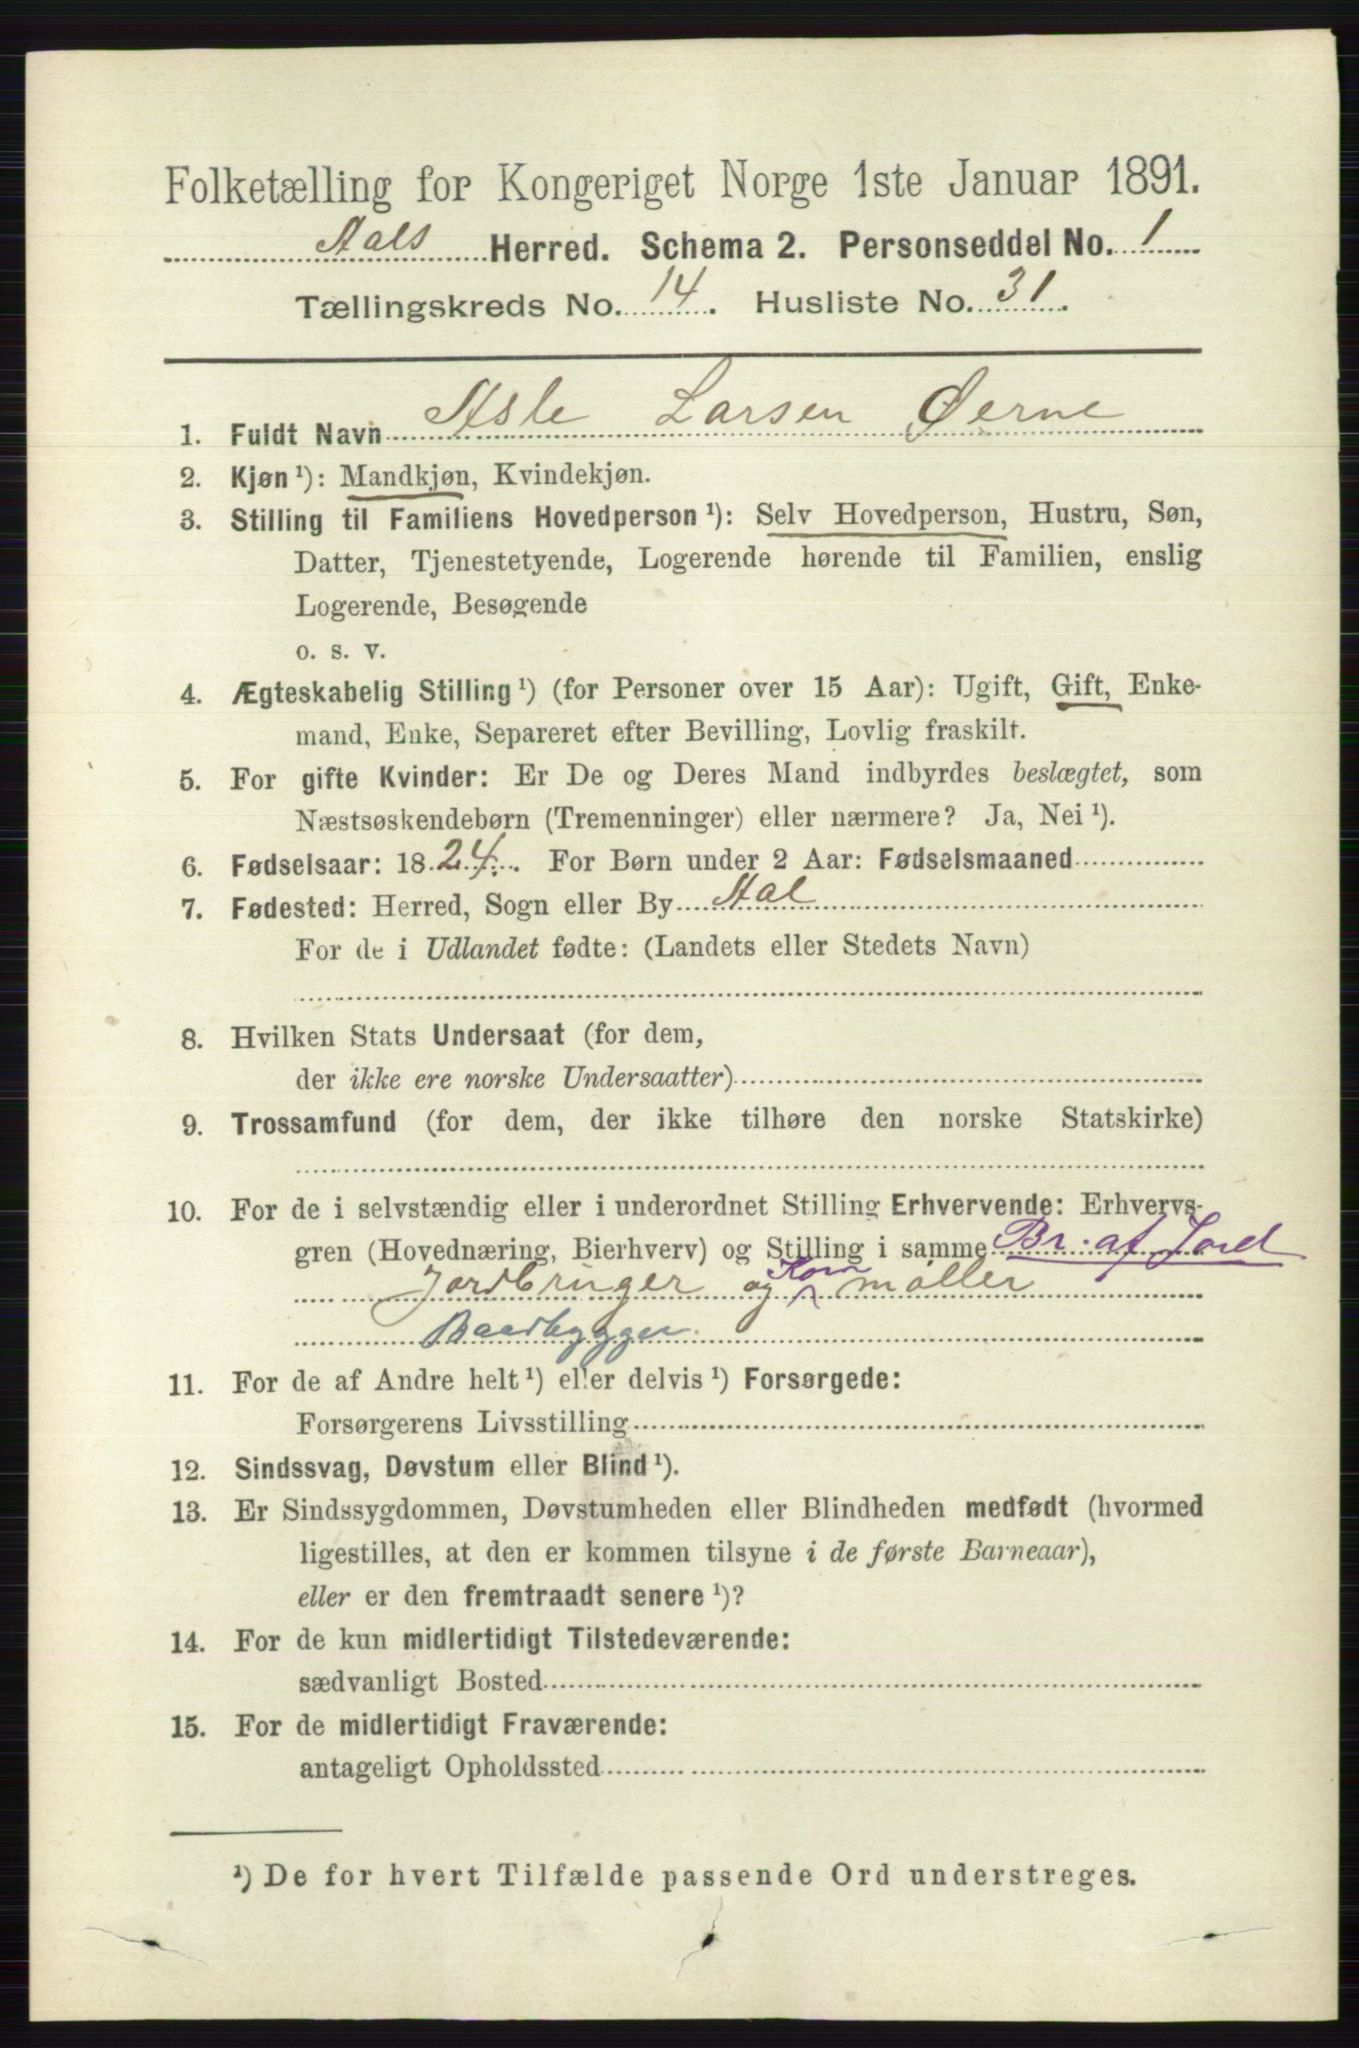 Folketælling for Kongeriget Norge 1ste Januar 1891.
Aals Herred. Schema 2. Personseddel No. 1
Tællingskreds No. 14. Husliste No. 31.
1. Fuldt Navn Asle Larsen Øerne
2. Kjøn ¹): Mandkjøn, Kvindekjøn.
3. Stilling til Familiens Hovedperson ¹): Selv Hovedperson, Hustru, Søn,
Datter, Tjenestetyende, Logerende hørende til Familien, enslig
Logerende, Besøgende
o. s. v.
4. Ægteskabelig Stilling ¹) (for Personer over 15 Aar): Ugift, Gift, Enke-
mand, Enke, Separeret efter Bevilling, Lovlig fraskilt.
5. For gifte Kvinder: Er De og Deres Mand indbyrdes beslægtet, som
Næstsøskendebørn (Tremenninger) eller nærmere? Ja, Nei ¹).
6. Fødselsaar: 1824. For Børn under 2 Aar: Fødselsmaaned
7. Fødested: Herred, Sogn eller By Aal
For de i Udlandet fødte: (Landets eller Stedets Navn)
8. Hvilken Stats Undersaat (for dem,
der ikke ere norske Undersaatter)
9. Trossamfund (for dem, der ikke tilhøre den norske Statskirke)
10. For de i selvstændig eller i underordnet Stilling Erhvervende: Erhvervs-
gren (Hovednæring, Bierhverv) og Stilling i samme Br. af Jord
Jordbruger og Korn møller
Baadbygger.
11. For de af Andre helt ¹) eller delvis ¹) Forsørgede:
Forsørgerens Livsstilling
12. Sindssvag, Døvstum eller Blind ¹).
13. Er Sindssygdommen, Døvstumheden eller Blindheden medfødt (hvormed
ligestilles, at den er kommen tilsyne i de første Barneaar),
eller er den fremtraadt senere ¹)?
14. For de kun midlertidigt Tilstedeværende:
sædvanligt Bosted
15. For de midlertidigt Fraværende:
antageligt Opholdssted
¹) De for hvert Tilfælde passende Ord understreges.